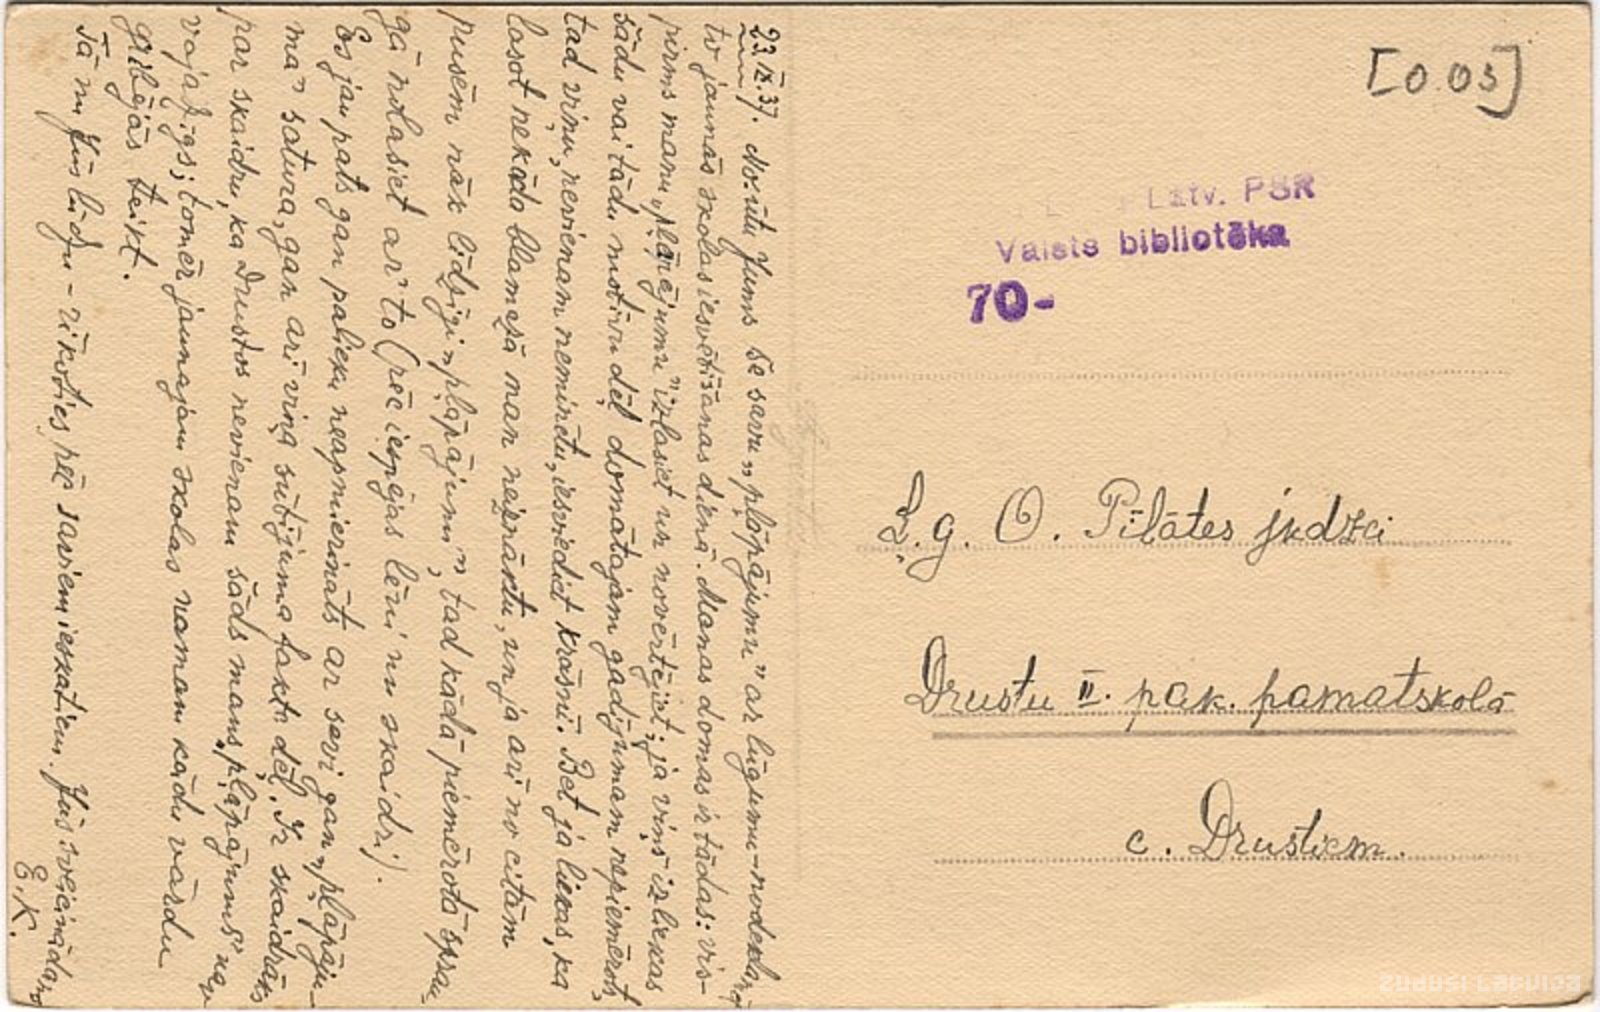 23.IX.37. Nosūtu Jums še savu „pļāpājumu” ar lūgumu – nodeklarē
to jaunās skolas iesvētīšanas dienā. Manas domas ir tādas: vis-
pirms manu „pļāpējumu” izlasiet un novērtējiet; ja viņš izliekas
šādu vai tādu motīvu dēļ domātajam gadījumam nepiemērots,
tad viņu, nevienam neminētu, iesviediet krāsnī. Bet ja liekas, ka
lasot nekāda blamāža man neiznāktu, un ja arī no citām
pusēm nāk līdzīgi „pļāpājumi”, tad kādā piemērotā sprau
gā nolasiet ar' to (pēc iespējas lēni un skaidri).
Es jau pats gan palieku neapmierināts ar sevi gan „pļāpāju-
ma” satura, gan arī viņa sūtījuma fakta dēļ. Ir skaidrāks
par skaidru, ka Drustos nevienam šāds mans „pļāpājums” nav
vajadzīgs; tomēr jaunajam skolas namam kādu vārdu
gribējās teikt.
Tā nu Jūs lūdzu – rīkoties pēc saviem ieskatiem. Jūs sveicinādams
E.K.
[0.05]
Latv. PSR
Valsts bibliotēka
70-
Ļ. g. O. Pīlātes jkdzei
Drustu II. pak. pamatskolā
c. Drustiem.
zudusi latvija